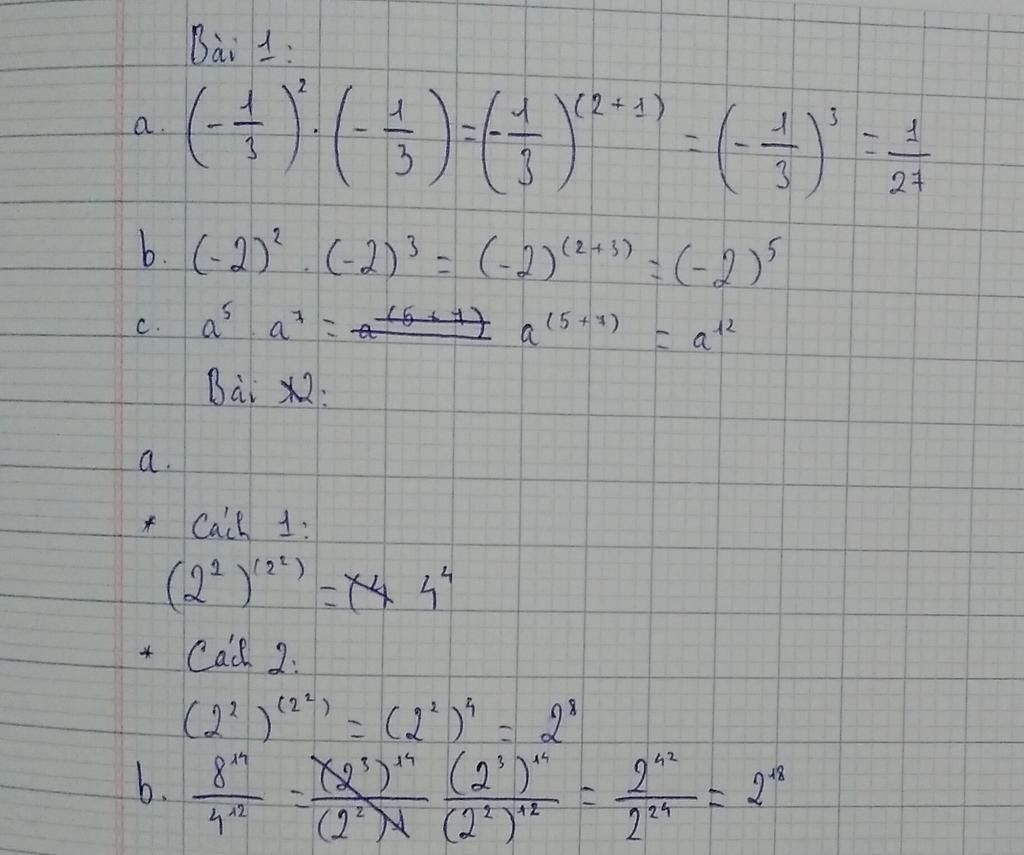 Bài 1:
a. (-1/3)² . (-1/3) = (-1/3)^(2+1) = (-1/3)³ = 1/27
b. (-2)² . (-2)³ = (-2)^(2+3) = (-2)⁵
c. a⁵ a⁷ = a^(5+7) a^(5+7) = a¹²
Bài 2:
a.
* Cách 1:
(2²)^(2²) = (4 4⁴
* Cách 2:
(2²)^(2²) = (2²)⁴ = 2⁸
b. 8¹⁴/4¹² = (2³)¹⁴/(2²)1 (2³)¹⁴/(2²)¹² = 2⁴²/2²⁴ = 2¹⁸